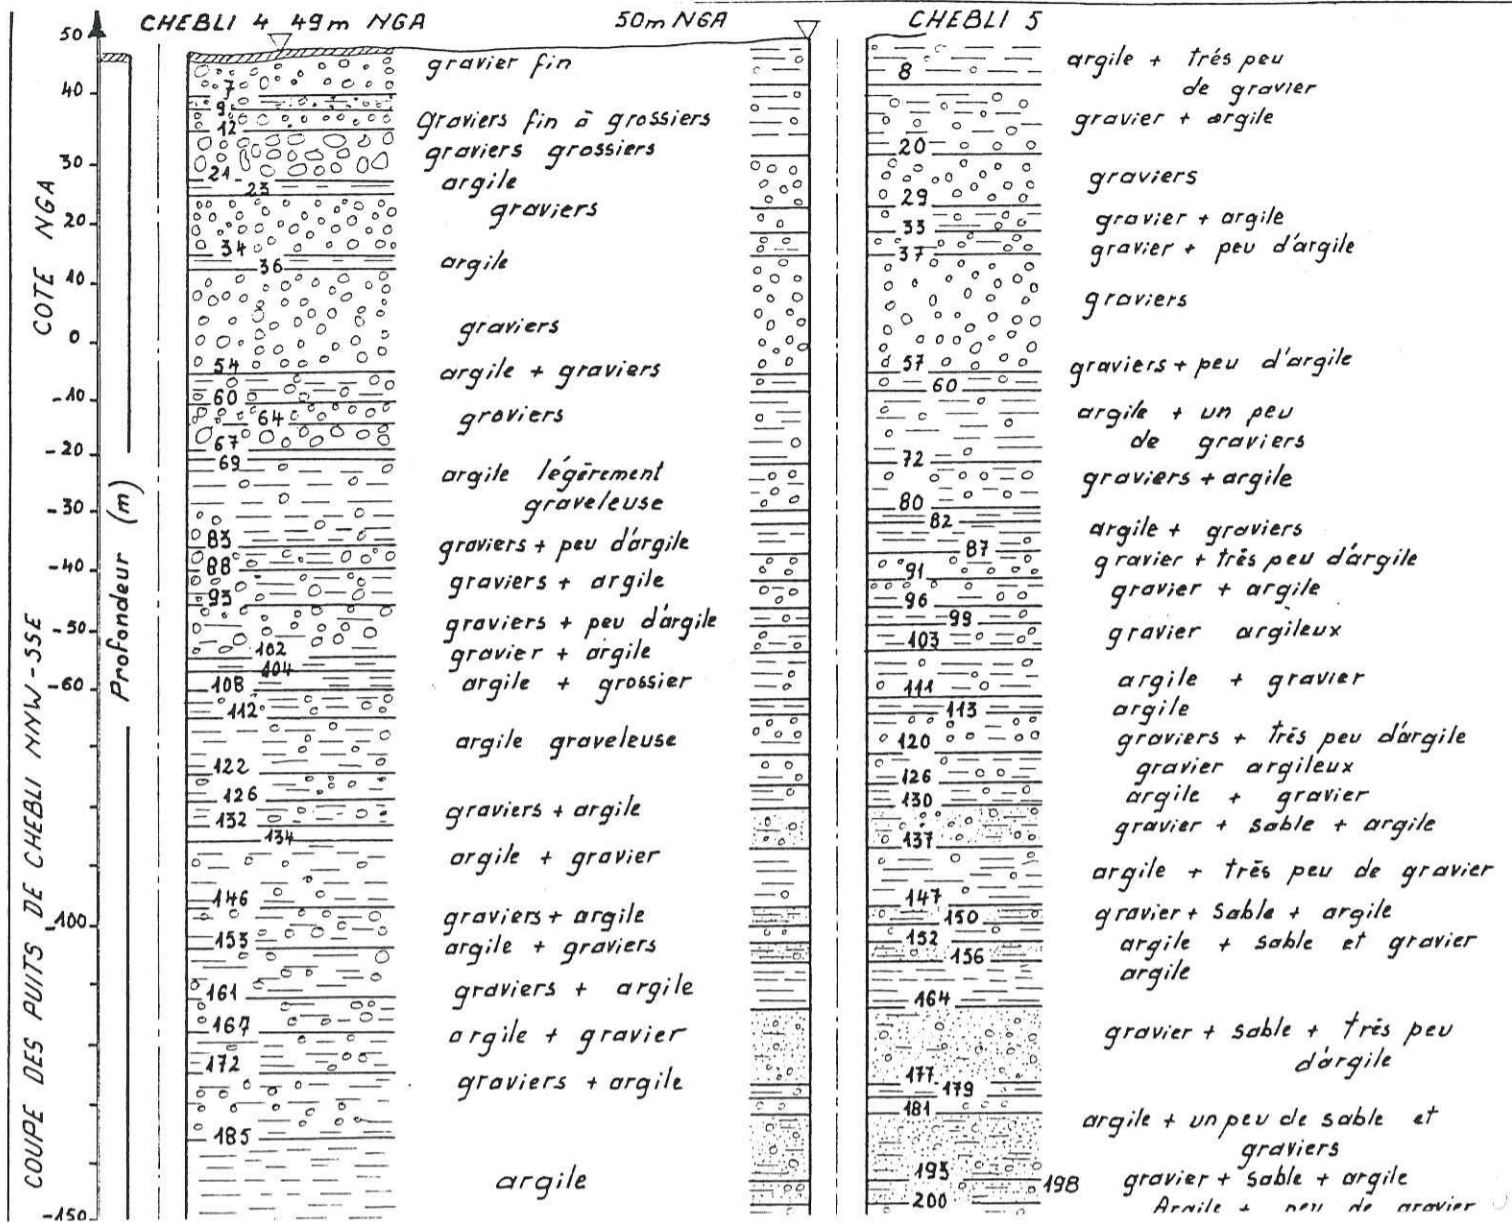 CHEBLI 4 49m NGA
50m NGA
CHEBLI 5
COTE NGA
50
40
30
20
10
0
-10
-20
-30
-40
-50
-60
-100
-150
Profondeur (m)
COUPE DES PUITS DE CHEBLI NNW-SSE
7
9
12
21
23
34
36
54
60
64
67
69
83
88
93
102
104
108
112
122
126
132
134
146
153
161
167
172
185
gravier fin
graviers fin à grossiers
graviers grossiers
argile
graviers
argile
graviers
argile + graviers
graviers
argile légèrement
graveleuse
graviers + peu d'argile
graviers + argile
graviers + peu d'argile
gravier + argile
argile + grossier
argile graveleuse
graviers + argile
argile + gravier
graviers + argile
argile + graviers
graviers + argile
argile + gravier
graviers + argile
argile
8
20
29
33
37
57
60
72
80
82
87
91
96
99
103
111
113
120
126
130
137
147
150
152
156
164
177
179
181
193
198
200
argile + trés peu
de gravier
gravier + argile
graviers
gravier + argile
gravier + peu d'argile
graviers
graviers + peu d'argile
argile + un peu
de graviers
graviers + argile
argile + graviers
gravier + très peu d'argile
gravier + argile
gravier argileux
argile + gravier
argile
graviers + très peu d'argile
gravier argileux
argile + gravier
gravier + sable + argile
argile + très peu de gravier
gravier + sable + argile
argile + sable et gravier
argile
gravier + sable + très peu
d'argile
argile + un peu de sable et
graviers
gravier + sable + argile
Argile + peu de gravier